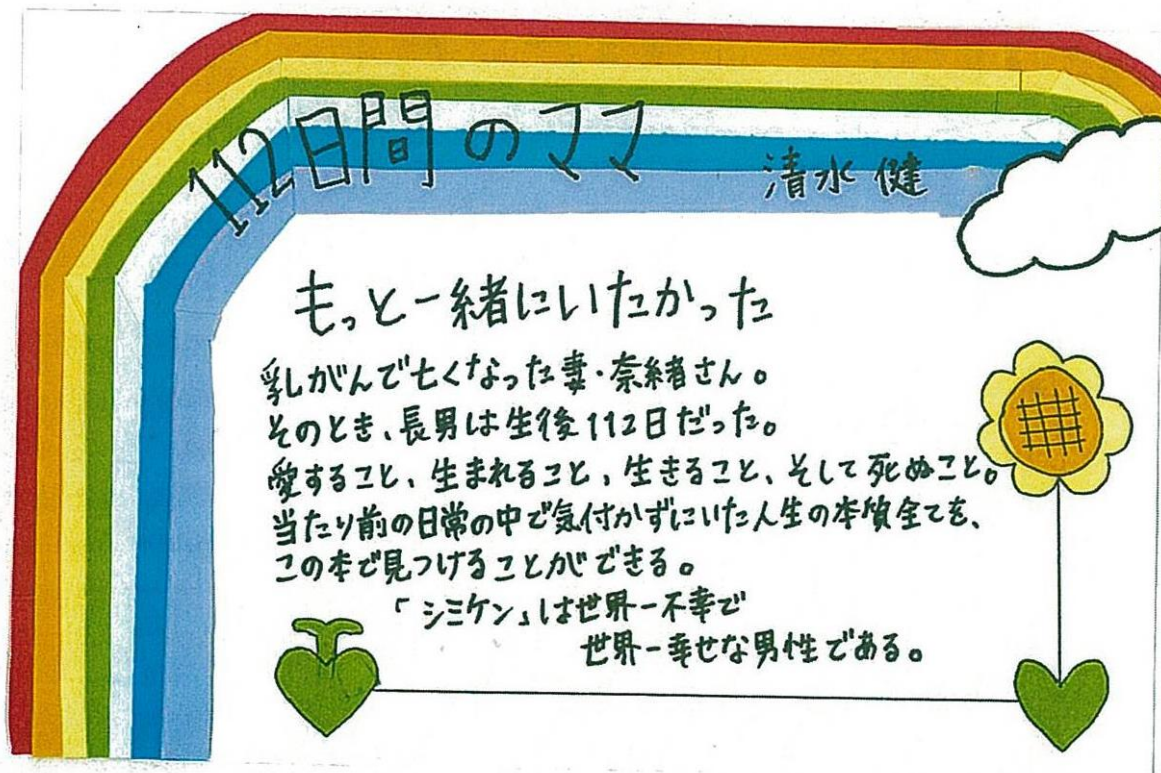 112日間のママ
清水健
もっと一緒にいたかった
乳がんで亡くなった妻・奈緒さん。
そのとき、長男は生後112日だった。
愛すること、生まれること、生きること、そして死ぬこと。
当たり前の日常の中で気付かずにいた人生の本質全てを、
この本で見つけることができる。
「シミケン」は世界一不幸で
世界一幸せな男性である。